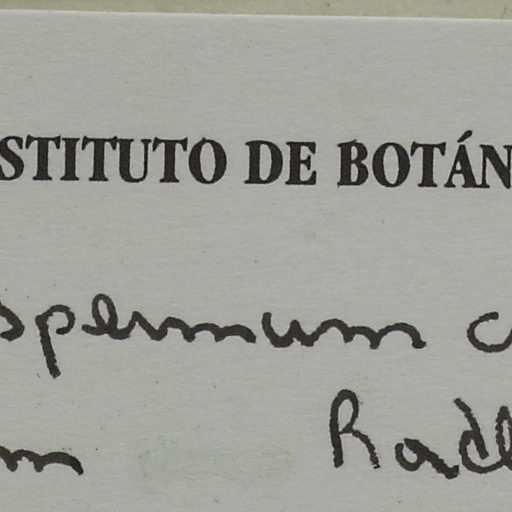 STITUTO DE BOTÁN
spermum c
m Radl